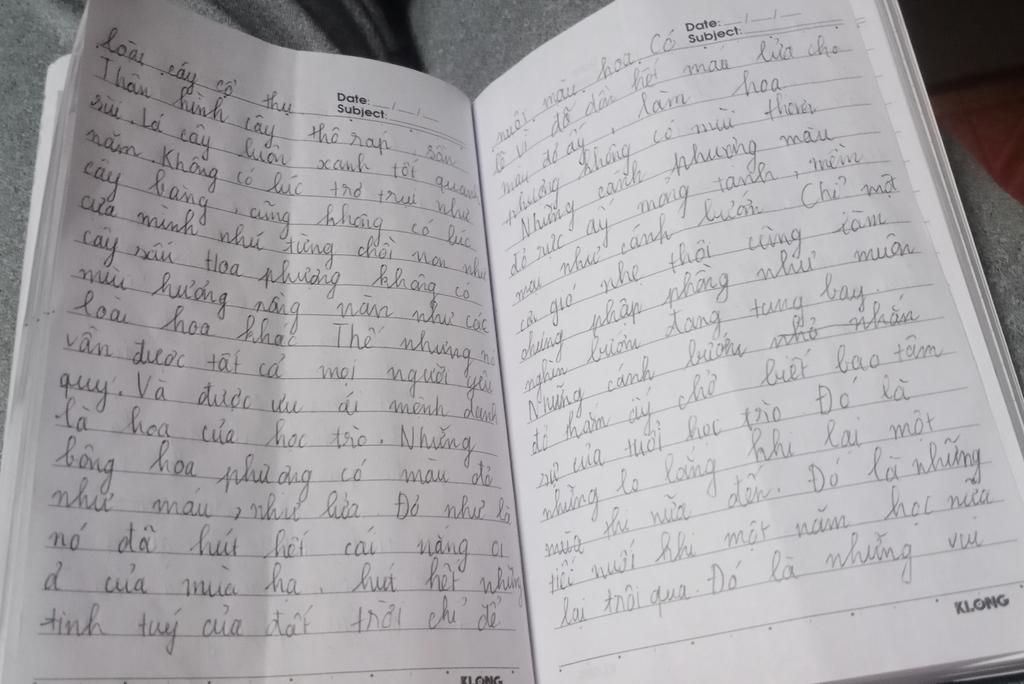 loài cây cổ thụ
Date: __/__/__
Subject:
Thân hình cây thô ráp, sần
sùi. Lá cây luôn xanh tốt quanh
năm. Không có lúc trơ trụi như
cây bàng, cũng không có lúc
của mình như từng chồi non như
cây sấu Hoa phượng không có
mùi hương nồng nàn như các
loài hoa khác Thế nhưng nó
vẫn được tất cả mọi người yêu
quý. Và được ưu ái mệnh danh
là hoa của học trò. Những
bông hoa phượng có màu đỏ
như máu, như lửa Đỏ như là
nó đã hút hết cái nắng oi
ả của mùa hạ, hút hết những
tinh tuý của đất trời chỉ để
KLONG
Date: __/__/__
Subject:
nuôi màu hoa. Có
lẽ vì đã dồn hết máu lửa cho
màu đỏ ấy, làm hoa
phượng không có mùi thơm
Những cánh phượng màu
đỏ rực ấy mỏng tanh, mềm
mại như cánh bướm Chỉ một
cơn gió nhẹ thôi cũng làm
chúng phập phồng như muôn
nghìn bướm đang tung bay.
Những cánh bướm nhỏ nhắn
đỏ thắm ấy chở biết bao tâm
sự của tuổi học trò Đó là
những lo lắng khi lại một
mùa thi nữa đến. Đó là những
tiếc nuối khi một năm học nữa
lại trôi qua. Đó là những vui
KLONG